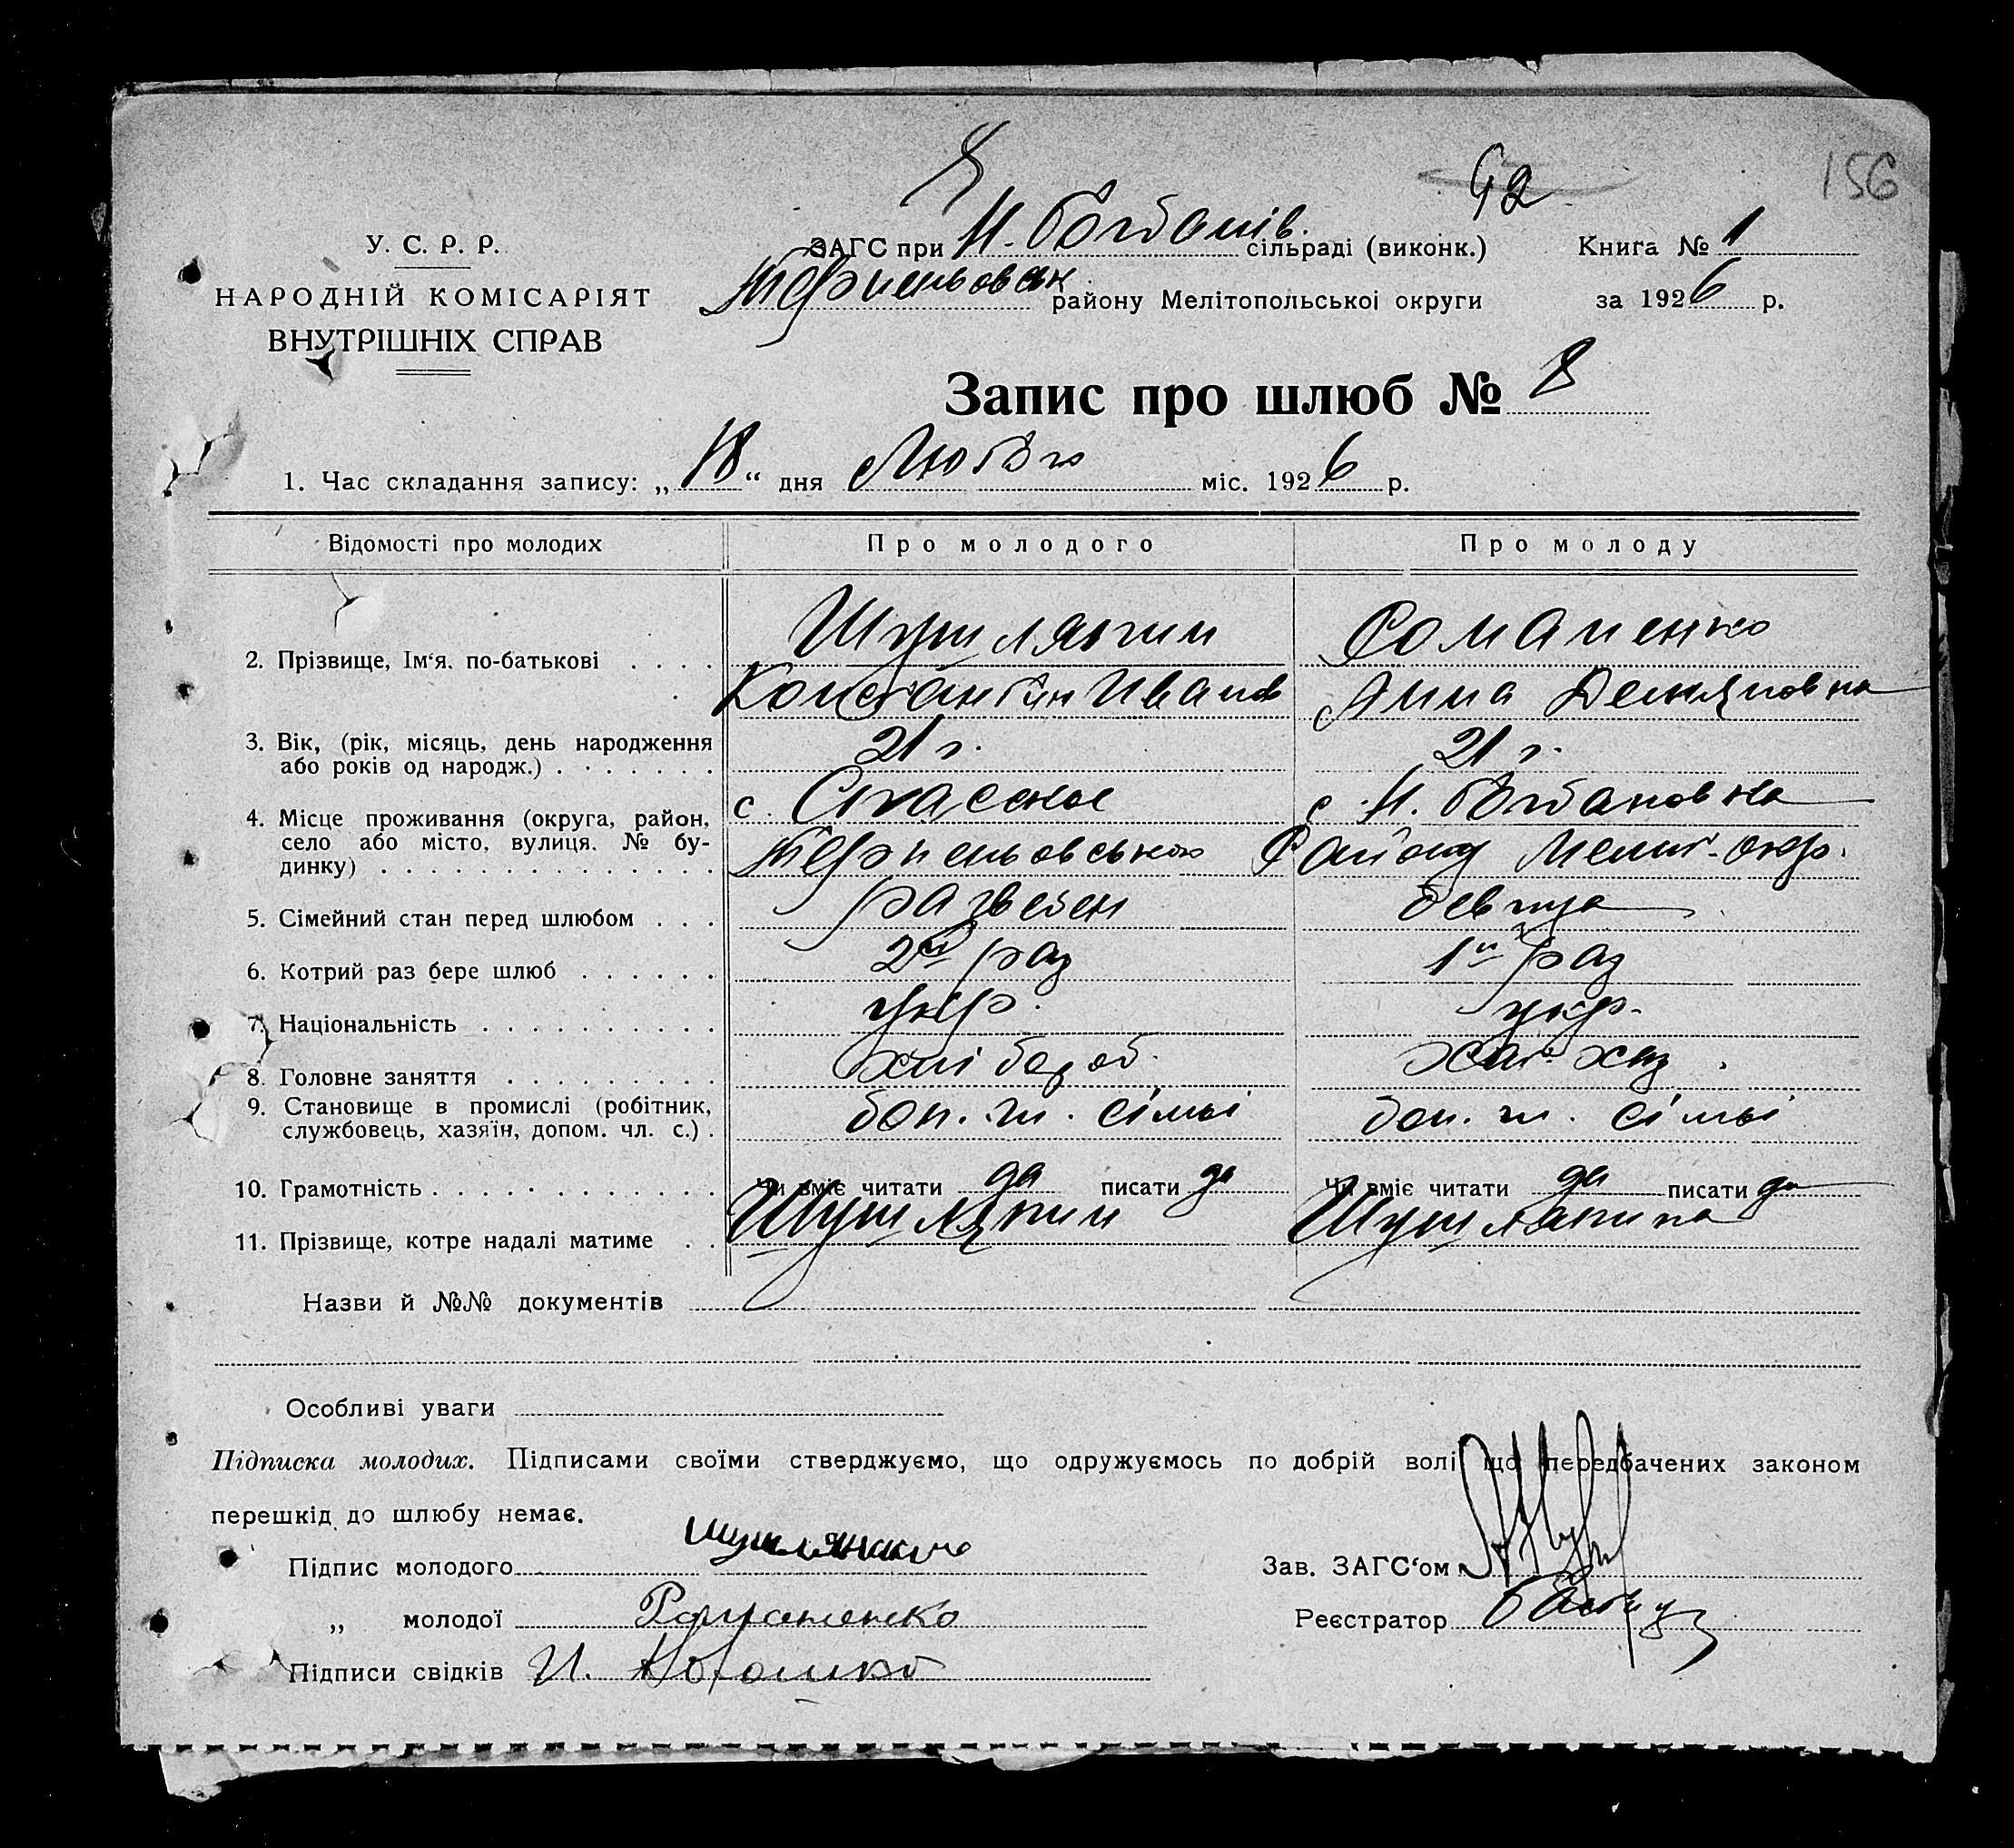 8
42
156
У. С. Р. Р.
НАРОДНІЙ КОМІСАРІЯТ
ВНУТРІШНІХ СПРАВ
ЗАГС при Н. Богданів. сільраді (виконк.) Книга № 1
Терпеньовськ району Мелітопольської округи за 1926 р.
Запис про шлюб № 8
1. Час складання запису: „18“ дня Лютого міс. 1926 р.
Відомості про молодих Про молодого Про молоду
2. Прізвище, Ім‘я. по-батькові Шушляпин Романенко
Константин Иванов Анна Демяновна
3. Вік, (рік, місяць, день народження
або років од народж.) 21 г. 21 г.
4. Місце проживання (округа, район, с. Спасское с. Н. Богдановка
село або місто, вулиця. № бу-
динку) Терпеньовського Району Мелит. окр.
5. Сімейний стан перед шлюбом разведен девица
6. Котрий раз бере шлюб 2й раз 1й раз
7. Національність укр. укр.
8. Головне заняття хлібороб.
9. Становище в промислі (робітник,
службовець, хазяїн, допом. чл. с.) доп. чл. сімьі доп. чл. сімьі
10. Грамотність Чи вміє читати да писати да Чи вміє читати да писати да
11. Прізвище, котре надалі матиме Шушляпин Шушляпина
Назви й №№ документів
Особливі уваги
Підписка молодих. Підписами своїми стверджуємо, що одружуємось по добрій волі що передбачених законом
перешкід до шлюбу немає.
Підпис молодого
„ молодої Романенко
Підписи свідків И.
Зав. ЗАГС‘ом
Реєстратор